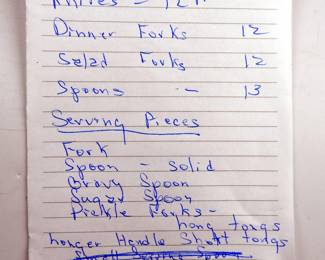 Knives - 12
Dinner Forks 12
Salad Forks 12
Spoons - 13
Serving Pieces
Fork
Spoon - solid
Gravy Spoon
Sugar Spoon
Pickle Forks -
long tongs
Longer Handle Short tongs